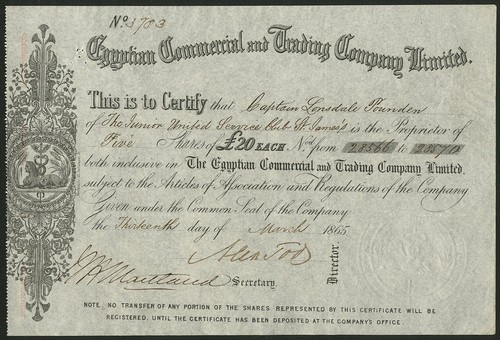 No. 3783
Egyptian Commercial and Trading Company Limited.
This is to Certify that Captain Lonsdale Pounden
of The Junior United Service Club St. James's is the Proprietor of
Five Shares of £20 EACH Nod. from 28566 to 28570
both inclusive in The Egyptian Commercial and Trading Company Limited,
subject to the Articles of Association and Regulations of the Company
Given under the Common Seal of the Company
the Thirteenth day of March 1865
Alex Tod
Director
Maitland Secretary.
NOTE, NO TRANSFER OF ANY PORTION OF THE SHARES REPRESENTED BY THIS CERTIFICATE WILL BE
REGISTERED, UNTIL THE CERTIFICATE HAS BEEN DEPOSITED AT THE COMPANY'S OFFICE.